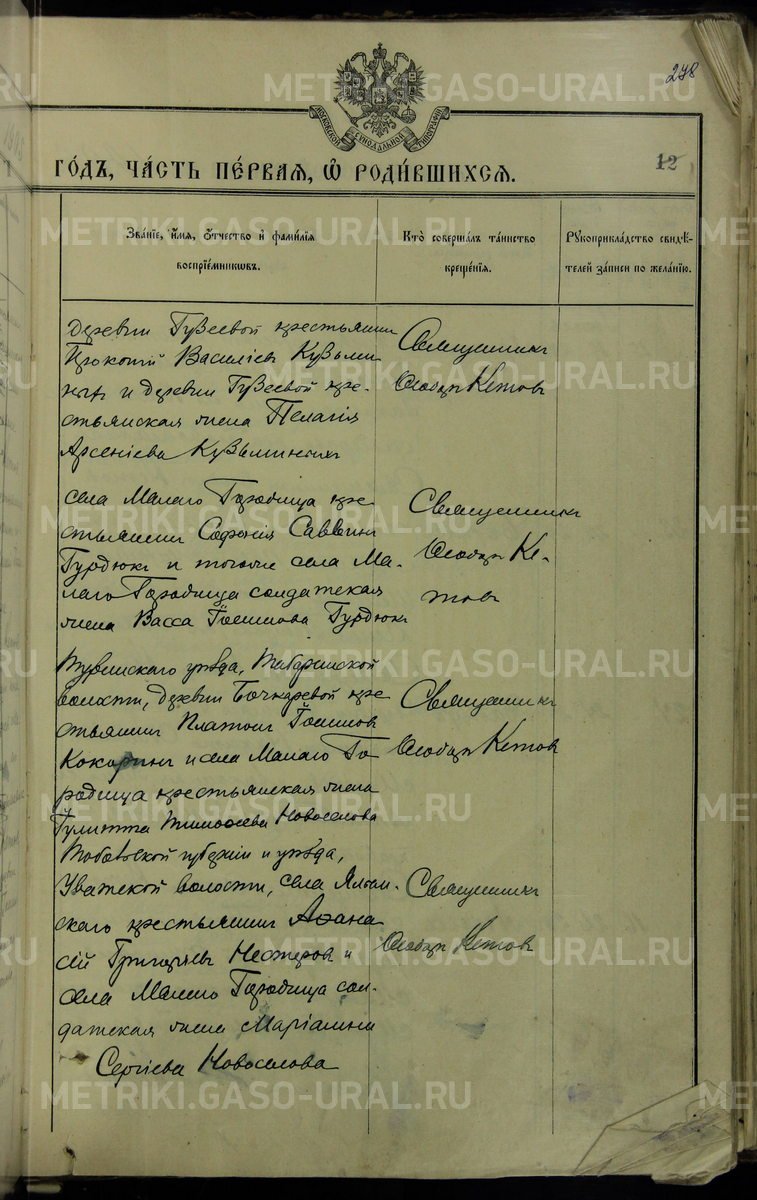 278
МОСКОВСКОЙ СѴНОДАЛЬНОЙ ТИПОГРАФІИ
12
ГО́ДЪ, ЧА́СТЬ ПЕ́РВАѦ, Ѽ РОДИ́ВШИХСѦ.
Зва́нїе, и҆́мѧ, ѻ҆́тчество и҆ фами́лїѧ
воспрїе́мникѡвъ.
Кто̀ соверша́лъ та́инство
креще́нїѧ.
Рꙋкоприкла́дство свидѣ́-
телей за́писи по жела́нїю.
деревни Гузеевой крестьянинъ
Прокопій Василіевъ Кузьми
ныхъ и деревни Гузеевой кре-
стьянская жена Пелагія
Арсеніева Кузьминыхъ
Священникъ
Кетовъ
села Малаго Городища кре
стьянинъ Софонія Саввинъ
Гурдюкъ и тогоже села Ма-
лаго Городища солдатская
жена Васса Іоаннова Гурдюкъ
Священникъ
Ке-
товъ
Туринскаго уѣзда, Табаринской
волости, деревни Бочкаревой кре
стьянинъ Платонъ Іоанновъ
Кокоринъ и села Малаго Го
родища крестьянская жена
Іулитта Тимоѳеева Новоселова
Священникъ
Кетовъ
Тобольской губерніи и уѣзда,
Уватской волости, села Ялбын-
скаго крестьянинъ Аѳана
сій Григорьевъ Нестеровъ и
села Малаго Городища сол-
датская жена Маріамна
Сергіева Новоселова
Священникъ
Кетовъ
METRIKI.GASO-URAL.RU